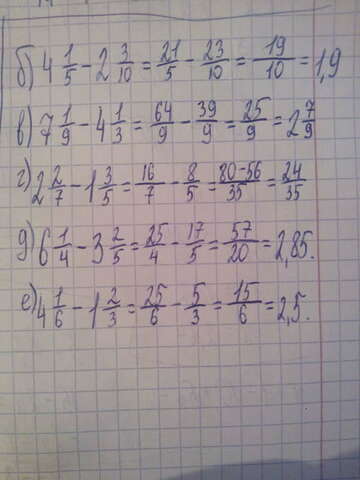 б) 4 1/5 - 2 3/10 = 21/5 - 23/10 = 19/10 = 1,9
в) 7 1/9 - 4 1/3 = 64/9 - 39/9 = 25/9 = 2 7/9
г) 2 2/7 - 1 3/5 = 16/7 - 8/5 = 80-56/35 = 24/35
д) 6 1/4 - 3 2/5 = 25/4 - 17/5 = 57/20 = 2,85.
е) 4 1/6 - 1 2/3 = 25/6 - 5/3 = 15/6 = 2,5.